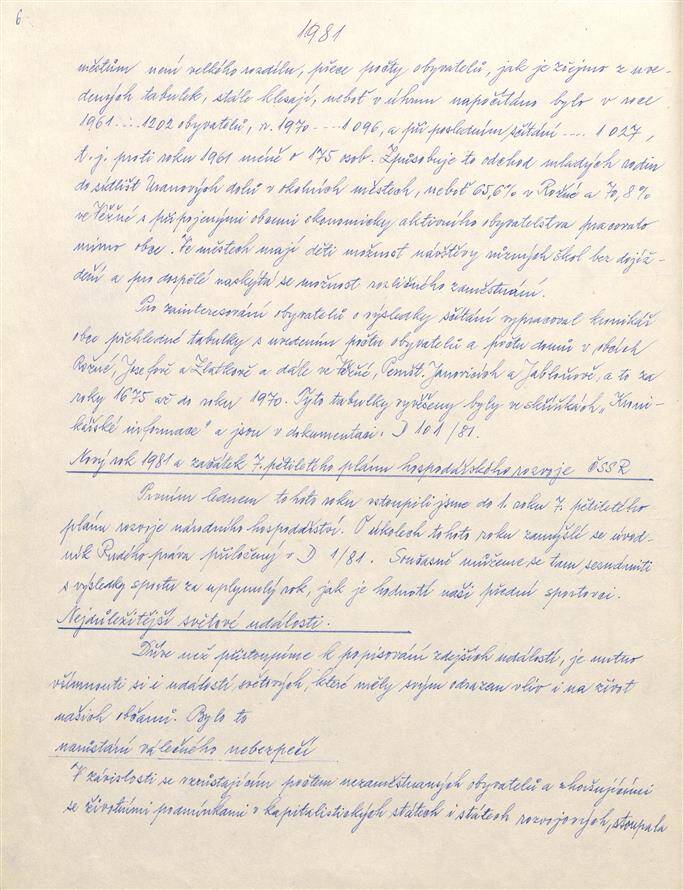 6
1981
městům není velkého rozdílu, přece počty obyvatelů, jak je zřejmo z uve-
dených tabulek, stále klesají, neboť v úhrnu napočítáno bylo v roce
1961 .... 1202 obyvatelů, r. 1970 .... 1096, a při posledním sčítání .... 1027,
t. j. proti roku 1961 méně o 175 osob. Způsobuje to odchod mladých rodin
do sídlišť Uranových dolů v okolních městech, neboť 65,6% v Rožné a 70,8%
ve Věžné s připojenými obcemi ekonomicky aktivního obyvatelstva pracovalo
mimo obce. Ve městech mají děti možnost návštěvy různých škol bez dojíž-
dění a pro dospělé naskytá se možnost rozličného zaměstnání.
Pro zainteresování obyvatelů o výsledky sčítání vypracoval kronikář
obce přehledné tabulky s uvedením počtu obyvatelů a počtu domů v obcích
Rožné, Josefově a Zlatkově a dále ve Věžné, Pernšt. Janovicích a Jabloňově, a to za
roky 1675 až do roku 1970. Tyto tabulky vyvěšeny byly ve skříňkách "Kroni-
kářské informace" a jsou v dokumentaci. D 101/81.
Nový rok 1981 a začátek 7. pětiletého plánu hospodářského rozvoje ČSSR
Prvním lednem tohoto roku vstoupili jsme do 1. roku 7. pětiletého
plánu rozvoje národního hospodářství. O úkolech tohoto roku zamýšlí se úvod-
ník Rudého práva přiložený v D 1/81. Současně můžeme se tam seznámiti
s výsledky sportu za uplynulý rok, jak je hodnotí naši přední sportovci.
Nejdůležitější světové události.
Dříve než přistoupíme k popisování zdejších událostí, je nutno
všimnouti si i událostí světových, které měly svým odrazem vliv i na život
našich občanů. Bylo to
narůstání válečného nebezpečí
V závislosti se vzrůstajícím počtem nezaměstnaných obyvatelů a zhoršujícími
se životními podmínkami v kapitalistických státech i státech rozvojových, stoupala